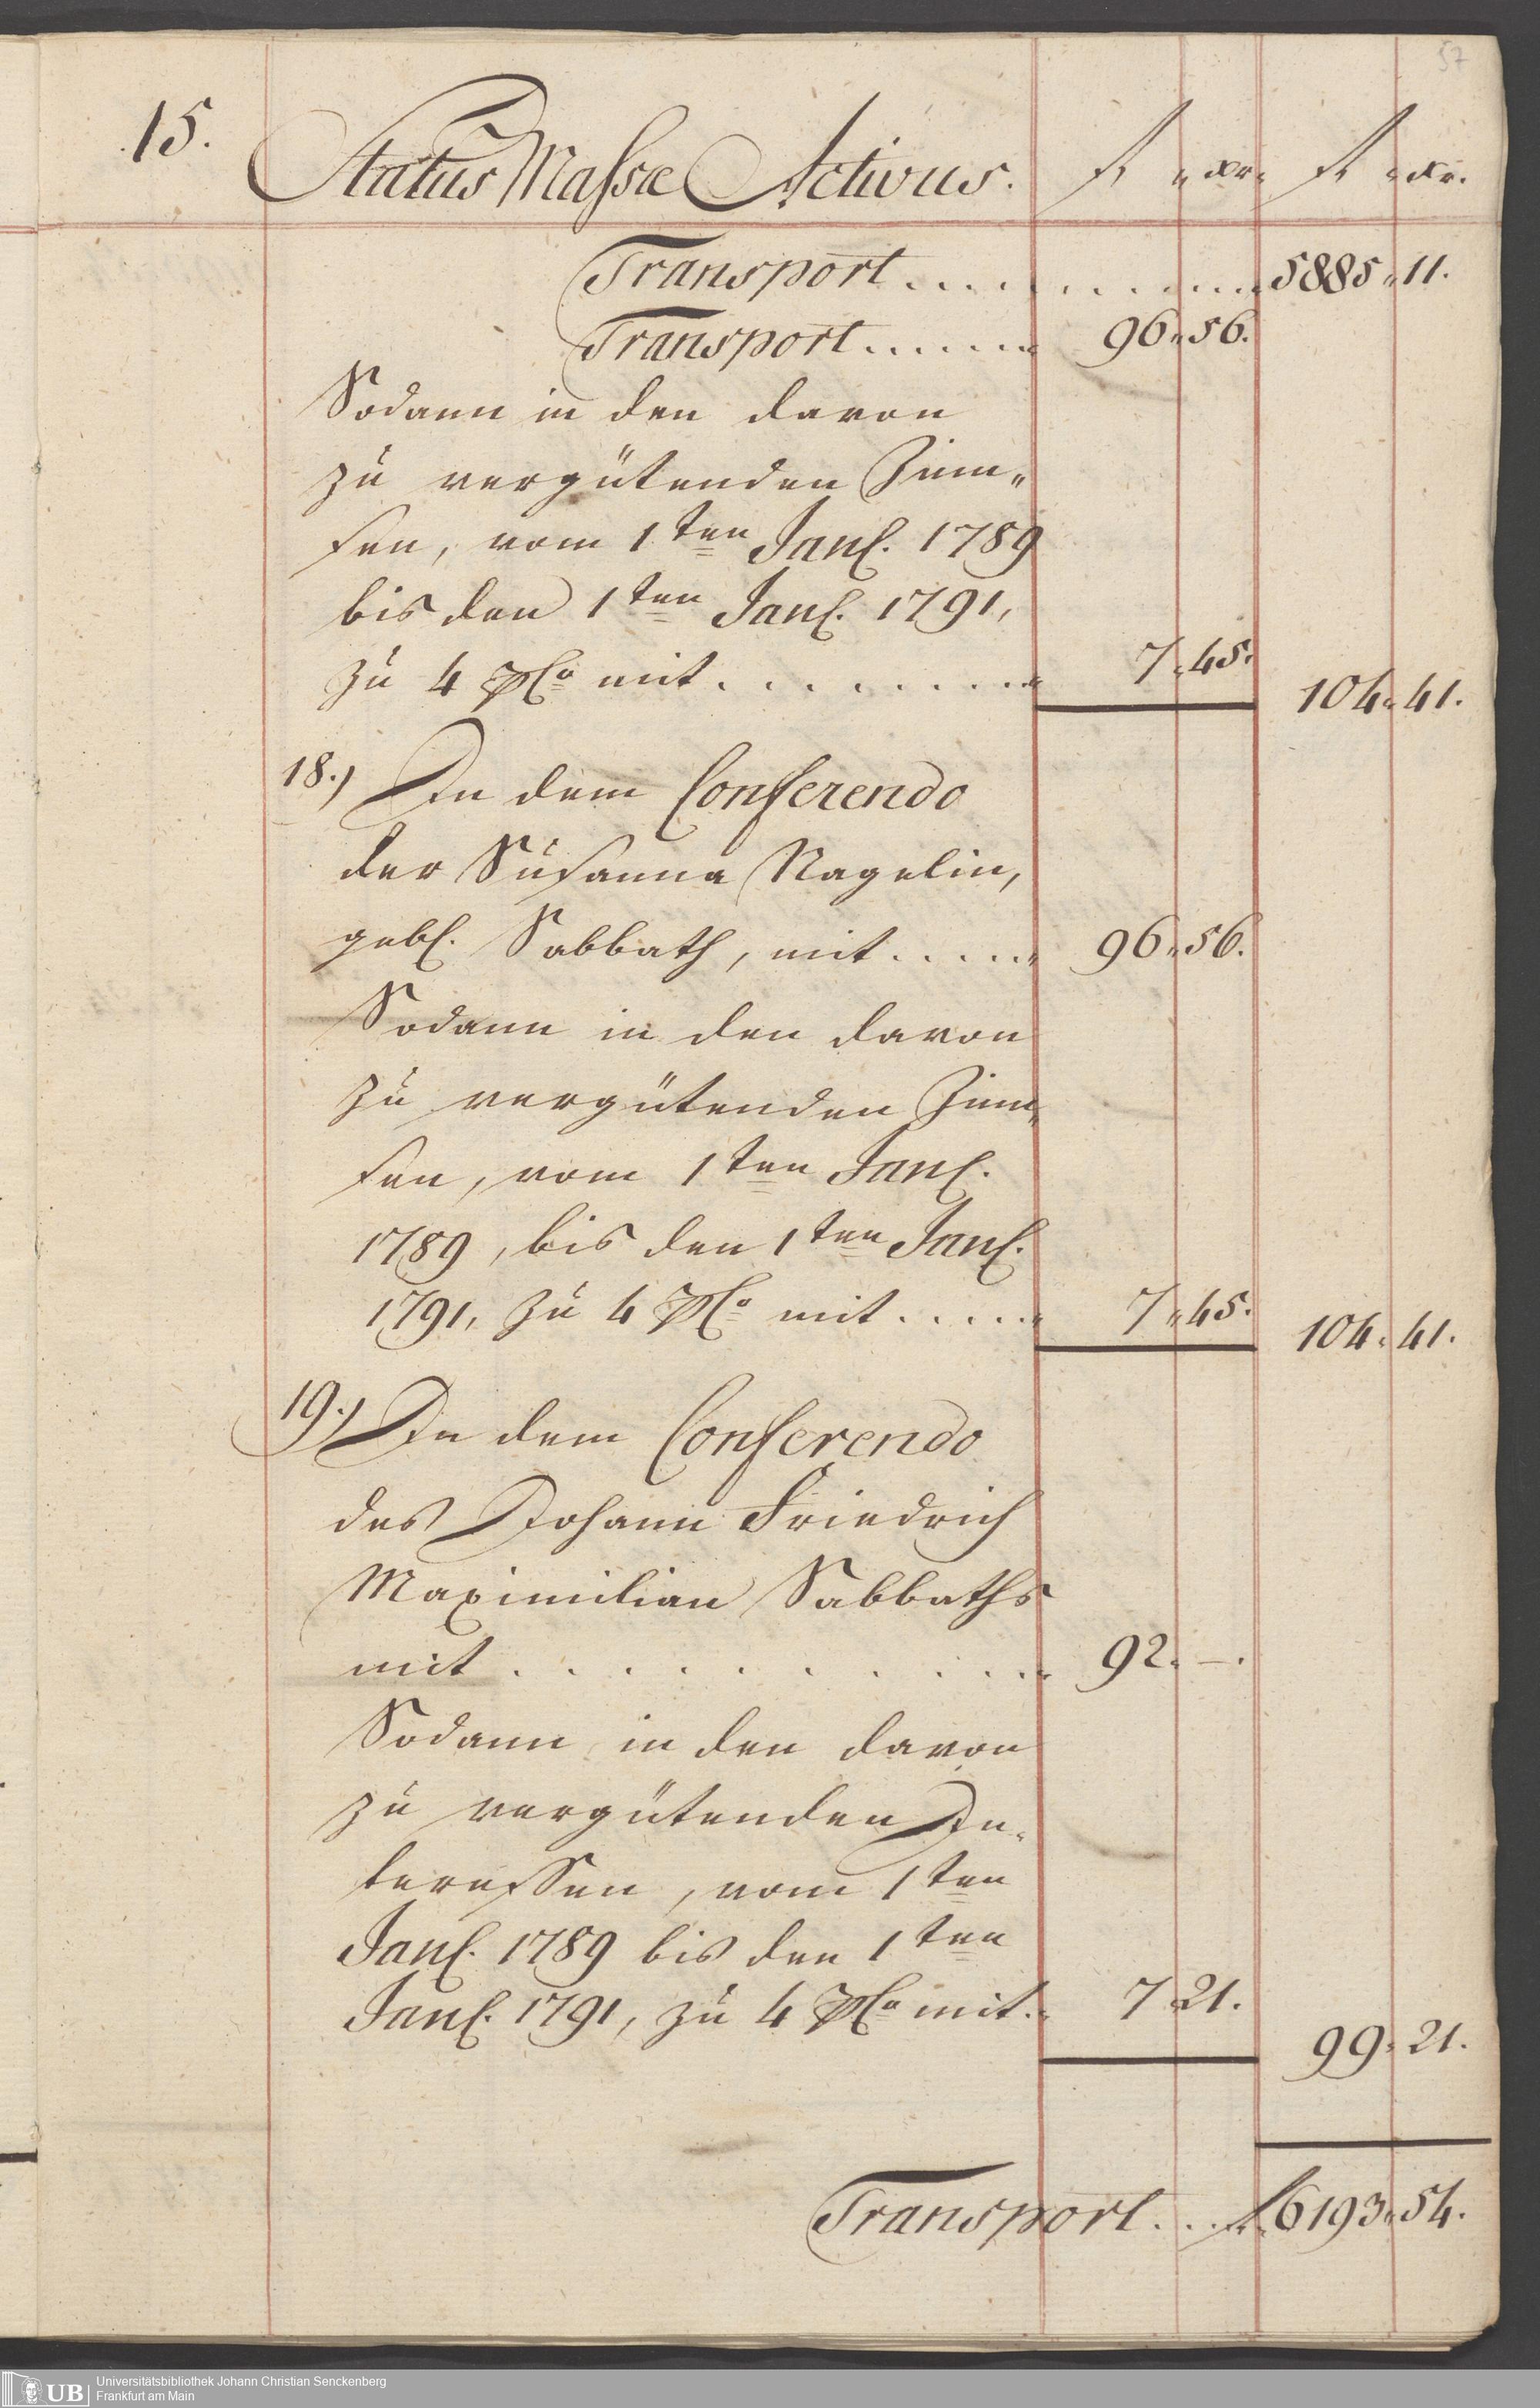 57
15.
Status Massæ Activus. fl „ xr. fl „ xr.
Transport . . . . . . . . . . 5885 „ 11.
Transport . . . . . . 96 „ 56.
Sodann in den davon
zu vergütenden Zinn„
sen, vom 1ten Janl. 1789
bis den 1ten Janl. 1791,
zu 4 pCo mit . . . . . . . . 7 „ 45. 104 „ 41.
18.) In dem Conferendo
der Susanna Nagelin,
gebl. Sabbath, mit . . . . . 96 „ 56.
Sodann in den davon
zu vergütenden Zinn„
sen, vom 1ten Janl.
1789, bis den 1ten Janl.
1791, zu 4 pCo mit . . . . . 7 „ 45. 104 „ 41.
19.) In dem Conferendo
des Johann Friedrich
Maximilian Sabbaths
mit . . . . . . . . . . 92 „ —.
Sodann in den davon
zu vergütenden In„
teressen, vom 1ten
Janl. 1789 bis den 1ten
Janl. 1791, zu 4 pCo mit . 7 „ 21.
99 „ 21.
Transport . . . fl 6193 „ 54.
UB Universitätsbibliothek Johann Christian Senckenberg
Frankfurt am Main